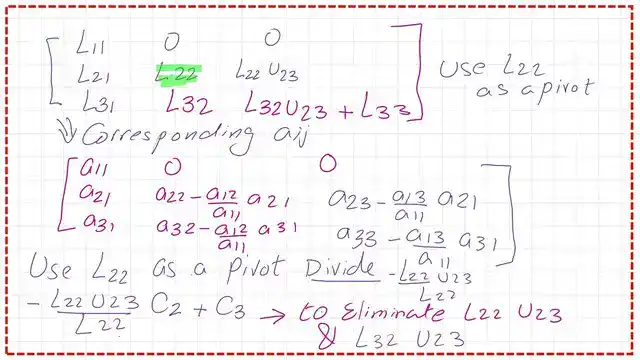 L11 0 0
L21 L22 L22 U23
L31 L32 L32U23 + L33
Use L22 as a pivot
⇓ Corresponding aij
a11 0 0
a21 a22 - a12/a11 a21 a23 - a13/a11 a21
a31 a32 - a12/a11 a31 a33 - a13/a11 a31
Use L22 as a pivot Divide - L22 U23/L22
- L22 U23/L22 C2 + C3 → to Eliminate L22 U23
& L32 U23